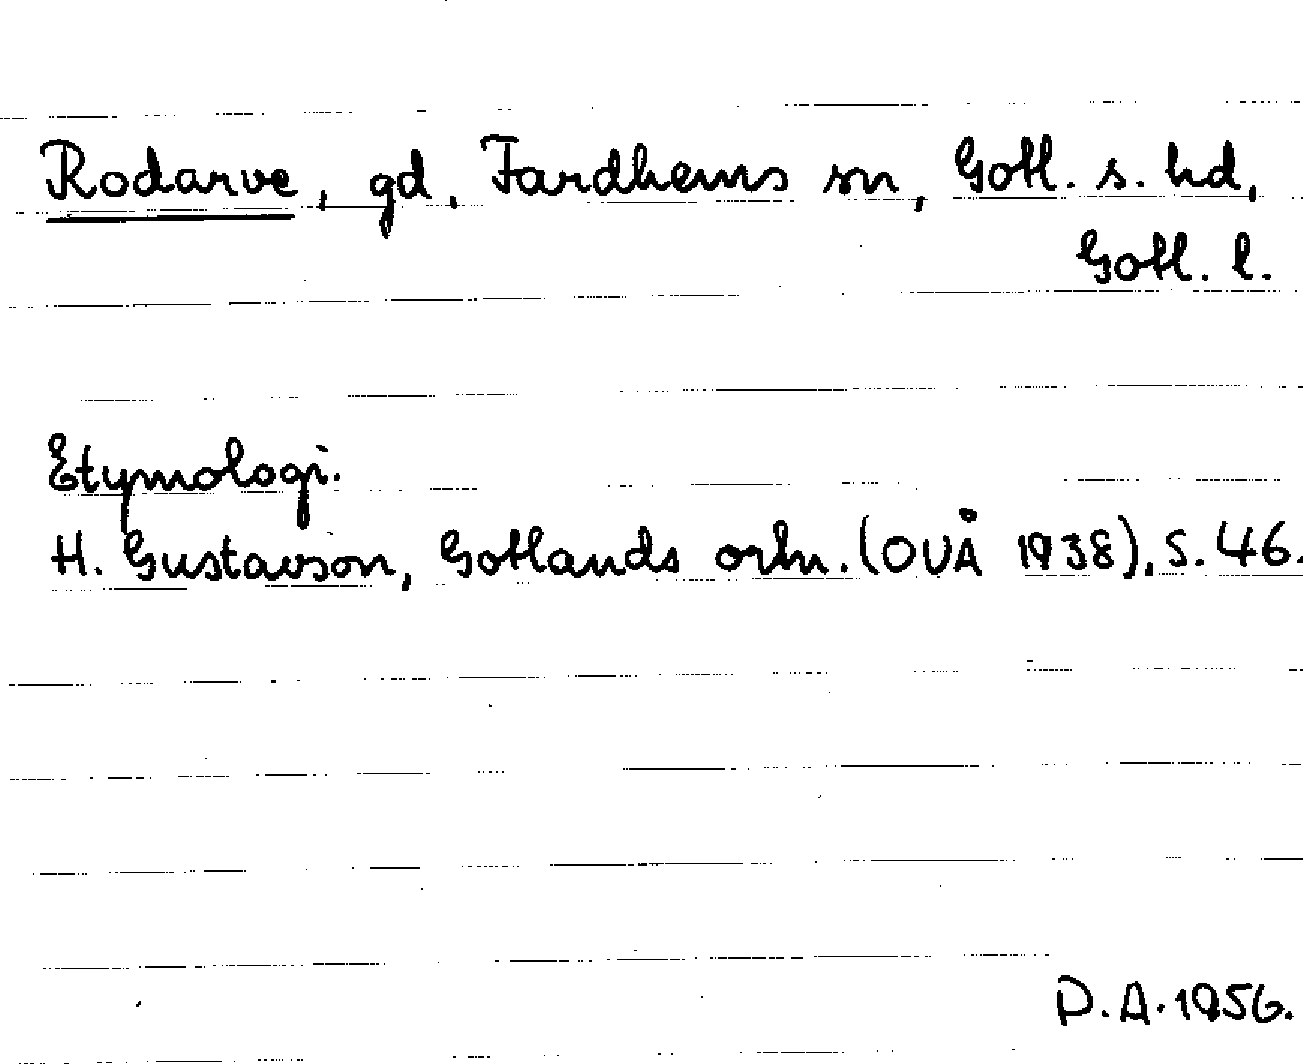 Rodarve, gd, Fardhems sn, Gotl. s. hd,
Gotl. l.
Etymologi.
H. Gustavson, Gotlands ortn. (OUÅ 1938), s. 46.
D.A. 1956.